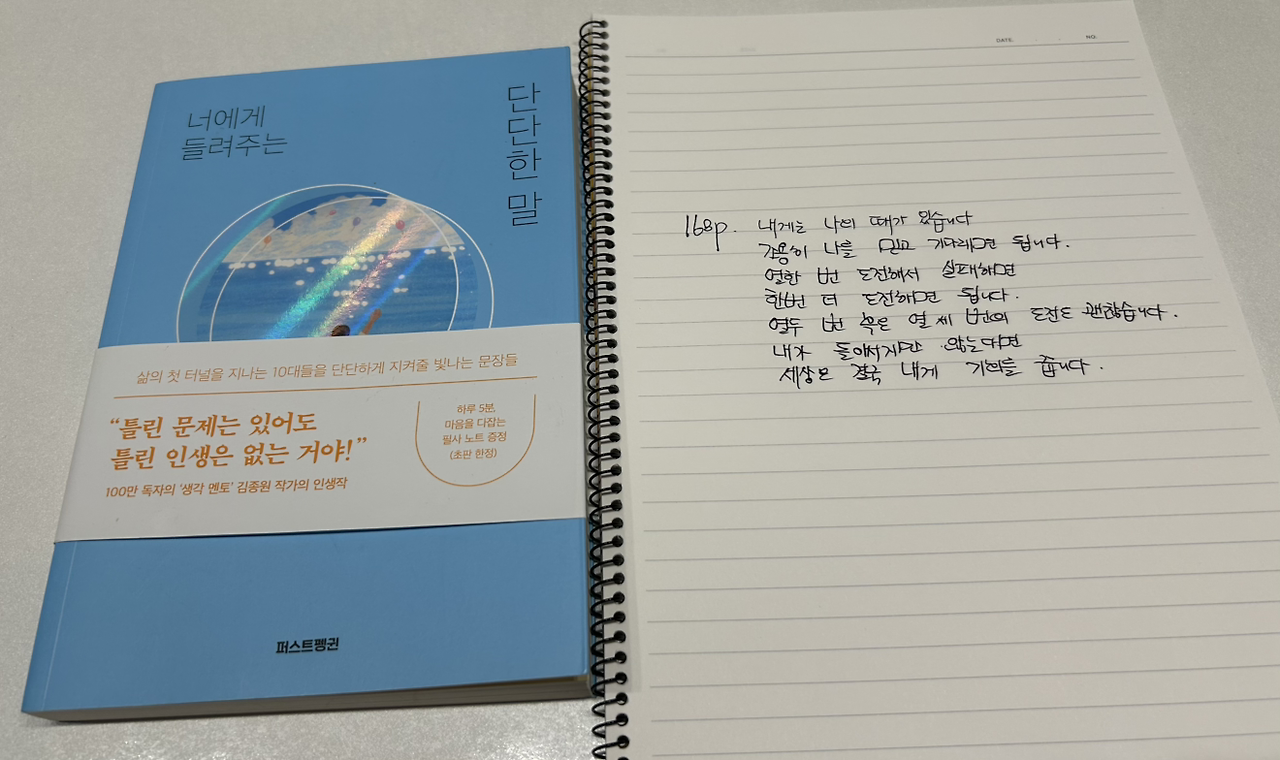 너에게
들려주는
단단한 말
삶의 첫 터널을 지나는 10대들을 단단하게 지켜줄 빛나는 문장들
“틀린 문제는 있어도
틀린 인생은 없는 거야!”
100만 독자의 '생각 멘토' 김종원 작가의 인생작
하루 5분,
마음을 다잡는
필사 노트 증정
(초판 한정)
퍼스트펭귄
DATE.
NO.
168p. 내게는 나의 때가 있습니다
조용히 나를 믿고 기다리면 됩니다.
열한 번 도전해서 실패하면
한번 더 도전하면 됩니다.
열두 번 혹은 열 세 번의 도전도 괜찮습니다.
내가 돌아서지만 않는다면
세상은 결국 내게 기회를 줍니다.